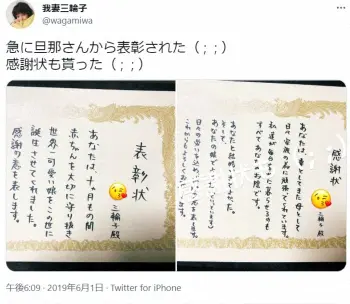 我妻三輪子
@wagamiwa
急に旦那さんから表彰された（ ; ; ）
感謝状も貰った（ ; ; ）
表彰状
三輪子殿
あなたは、十ヶ月もの間
赤ちゃんを大切に守り抜き
世界一可愛い娘をこの世に
誕生させてくれました。
感謝の意を表します。
感謝状
三輪子殿
あなたは、妻としてまた母として
日々家族の為に頑張ってくれています。
私達が毎日幸せに暮らせるのも
すべてあなたのお陰です。
あなたと結婚できてよかった。
あなたの娘で
日々の
これからもよろしく
午後6:09 · 2019年6月1日 · Twitter for iPhone